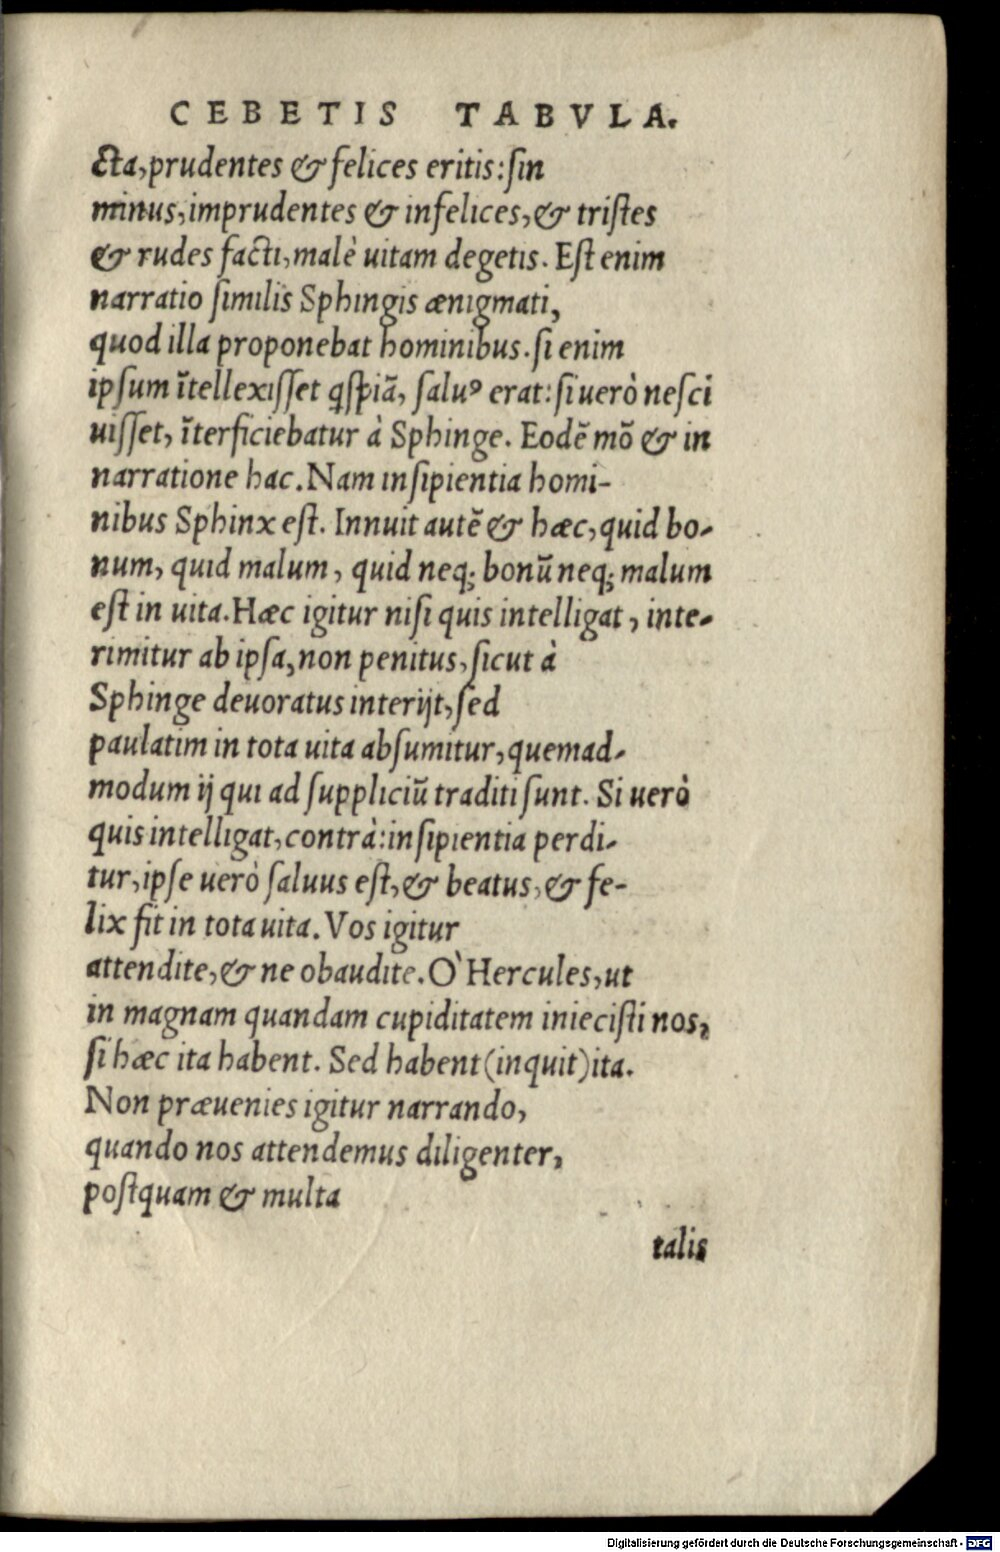 CEBETIS TABVLA.
cta, prudentes & felices eritis: ſin
minus, imprudentes & infelices, & triſtes
& rudes facti, malè uitam degetis. Eſt enim
narratio ſimilis Sphingis ænigmati,
quod illa proponebat hominibus. ſi enim
ipſum ĩtellexiſſet qſpiã, ſaluꝰ erat: ſi uerò neſci
uiſſet, ĩterficiebatur à Sphinge. Eodẽ mõ & in
narratione hac. Nam inſipientia homi-
nibus Sphinx eſt. Innuit autẽ & hæc, quid bo-
num, quid malum, quid neq; bonũ neq; malum
eſt in uita. Hæc igitur niſi quis intelligat, inte-
rimitur ab ipſa, non penitus, ſicut à
Sphinge deuoratus interijt, ſed
paulatim in tota uita abſumitur, quemad-
modum ij qui ad ſuppliciũ traditi ſunt. Si uerò
quis intelligat, contrà: inſipientia perdi-
tur, ipſe uerò ſaluus eſt, & beatus, & fe-
lix fit in tota uita. Vos igitur
attendite, & ne obaudite. O` Hercules, ut
in magnam quandam cupiditatem inieciſti nos,
ſi hæc ita habent. Sed habent (inquit) ita.
Non præuenies igitur narrando,
quando nos attendemus diligenter,
poſtquam & multa
talis
Digitalisierung gefördert durch die Deutsche Forschungsgemeinschaft - DFG